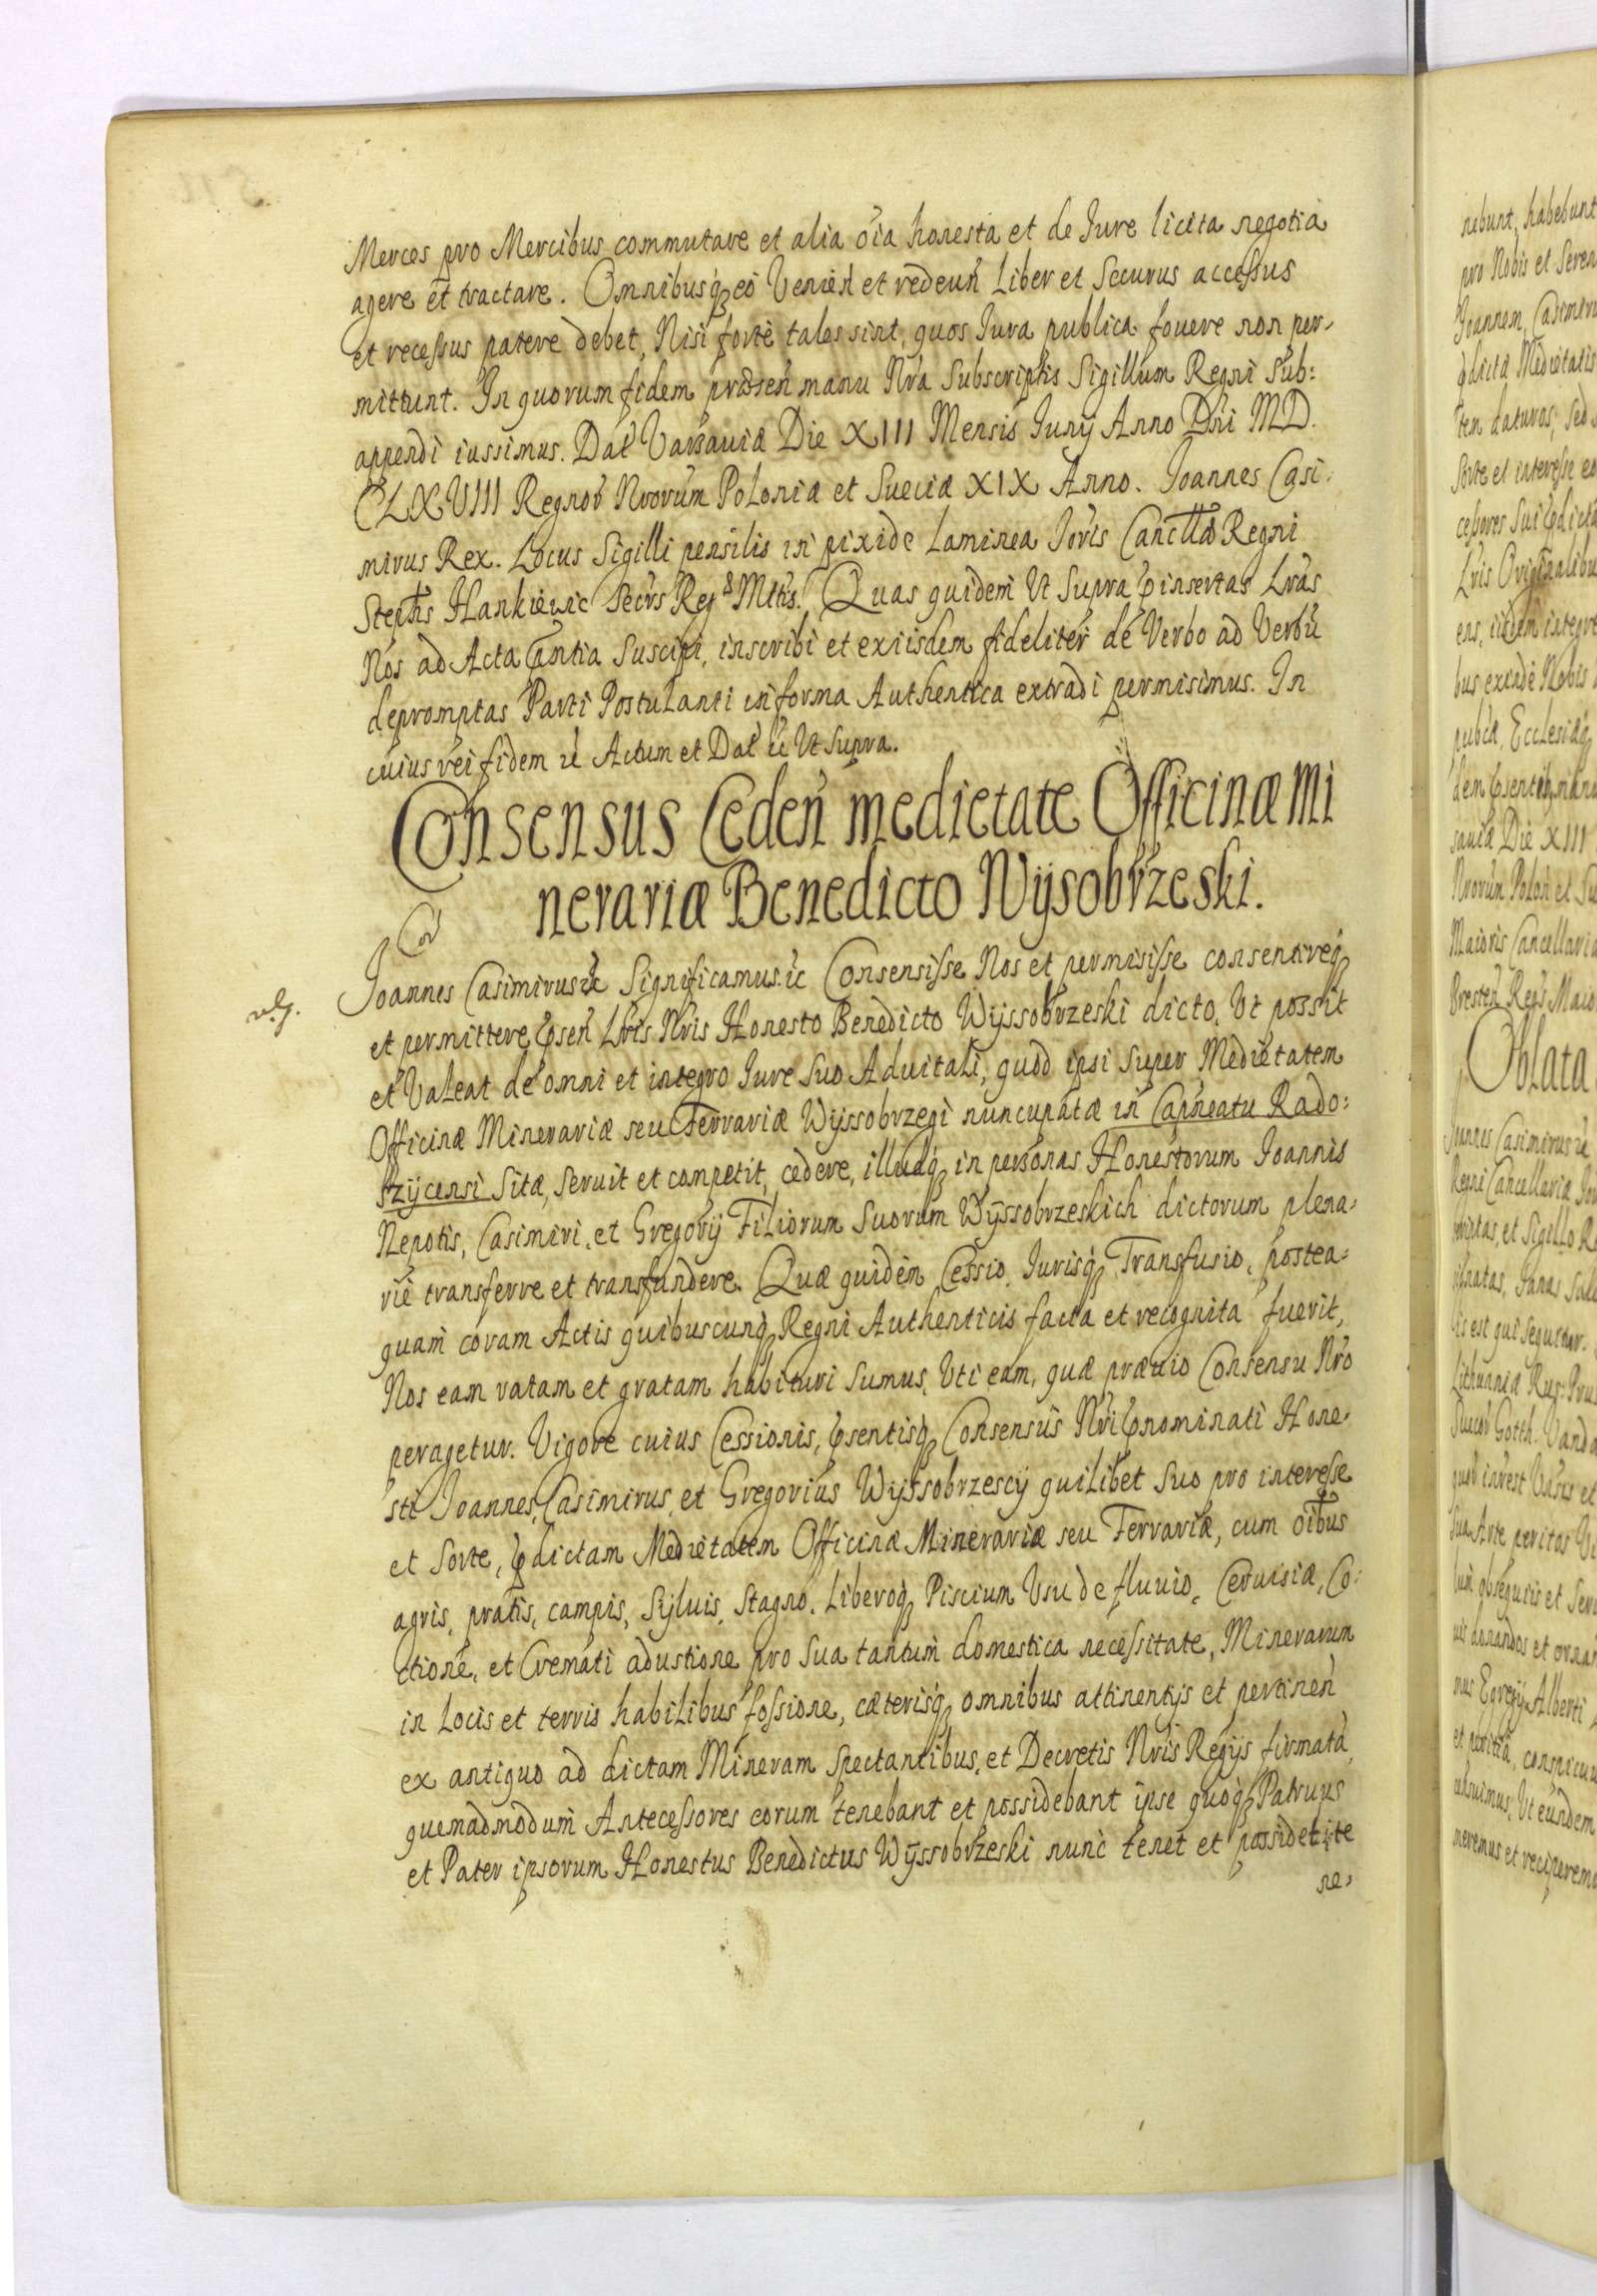 Merces pro Mercibus commutare et alia oĩa honesta et de Iure licita negotia
agere et tractare. Omnibusq̃ eo Venień et redeuń Liber et Securus accessus
et recessus patere debet, Nisi forte tales sint, quos Iura publica fovere non per-
mittunt. In quorum fidem præseń manu Nr̃a Subscriptis Sigillum Regni Sub:
appendi iussimus. Dat̃ Varsaviæ Die XIII Mensis Iunij Anno Dñi MD.
CLXVIII Regnor̃ Nrorũm Poloniæ et Sueciæ XIX Anno. Joannes Casi:
mirus Rex. Locus Sigilli pensilis in pixide Laminea Ioris Canc̃llæ Regni
Stephs Hankiewic Secr̃s Reg Mt̃is. Quas quidem Ut Supra p̃insertas Lrãs
Nos ad Acta p̃ntia Suscipi, inscribi et ex iisdem fideliter de Verbo ad Verbũ
depromptas Parti Postulanti in forma Authentica extradi permisimus. In
cuius rei fidem ꝛc Actum et Dat̃ ꝛc Ut Supra.
Consensus Cedeń medietate Officinæ Mi
nerariæ Benedicto Wÿsobrzeski.
Cor̃
Joannes Casimirus ꝛc Significamus ꝛc Consensisse Nos et permisisse consentireq̃
et permittere p̃seń Lr̃is Nr̃is Honesto Benedicto Wÿssobrzeski dicto, Ut possit
et Valeat de omni et integro Iure Suo Advitali, quod ipsi Super Medietatem
Officinæ Minerariæ seu Ferrariæ Wÿssobrzegi nuncupatæ in Capneatu Rado:
szÿcensi Sitæ, Servit et competit, cedere, illudq̃ in personas Honestorum Joannis
Nepotis, Casimiri, et Gregorij Filiorum Suorum Wÿssobrzeskich dictorum plena-
rie transferre et transfundere. Quæ quidem Cessio, Iurisq̃ Transfusio, postea-
quam coram Actis quibuscunq̃ Regni Authenticis facta et recognita fuerit,
Nos eam ratam et gratam habituri Sumus, Uti eam, quæ prævio Consensu Nr̃o
peragetur. Vigore cuius Cessionis, p̃sentisq̃ Consensus Nr̃i p̃nominati Hone-
sti Joannes, Casimirus, et Gregorius Wÿssobrzescÿ quilibet Suo pro interesse
et Sorte, p̃dictam Medietatem Officinæ Minerariæ seu Ferrariæ, cum oĩbus
agris, pratis, campis, Sylvis, Stagno, Liberoq̃ Piscium Usu de fluvio, Cervisiæ, Co:
ctione, et Cremati adustione pro Sua tantum domestica necessitate, Minerarum
in Locis et terris habilibus fossione, cæterisq̃ omnibus attinentijs et pertineń
ex antiquo ad dictam Mineram Spectantibus, et Decretis Nr̃is Regijs firmata,
quemadmodum Antecessores eorum tenebant et possidebant ipse quoq̃ Patruus
et Pater ipsorum Honestus Benedictus Wÿssobrzeski nunc tenet et possidet ite
ne-
nebunt, habebunt
pro Nobis et Seren
Joannem, Casimiru
p̃dicta Medietatis
Sorte et interesse eo
cessores Sui p̃dicta
Lr̃is Originalibu
pub̃cæ, Ecclesiæq̃
saviæ Die XIII
Nrorũm Poloń et Su
Maioris Cancellaria
Oblata
Joannes Casimirus ꝛc
Regni Cancellariæ
lis est qui Sequitur.
Lithuaniæ Rus: Prus
Suecor̃ Gotth. Vanda
Sua Arte peritos
nus Egregij Alberti
et peritia, conspicuu
nsuimus, Ut eundem
neremus et reciperemu